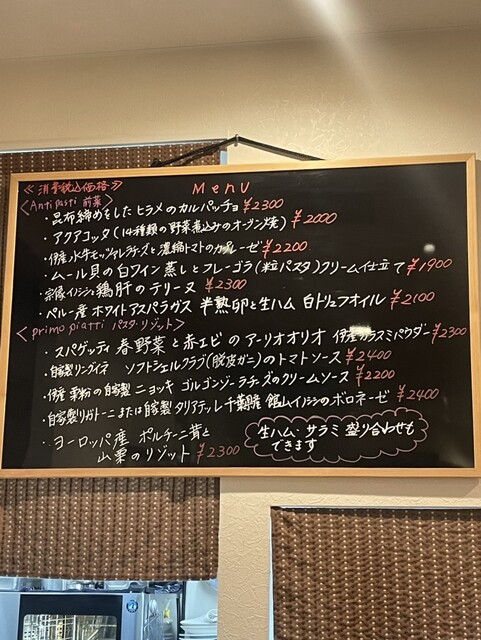 ≪消費税込価格≫
Menu
<Antipasti 前菜>
・昆布締めをした ヒラメのカルパッチョ ¥2300
・アクアコッタ(14種類の野菜煮込みのオーブン焼) ¥2000
・伊産水牛モッツァレラチーズと濃縮トマトのカプレーゼ ¥2200
・ムール貝の白ワイン蒸しとフレーゴラ(粒パスタ)クリーム仕立て ¥1900
・宗像イノシシと鶏肝のテリーヌ ¥2300
・ペルー産ホワイトアスパラガス 半熟卵と生ハム 白トリュフオイル ¥2100
<primo piatti パスタ・リゾット>
・スパゲッティ 春野菜と赤エビの アーリオオリオ 伊産カラスミパウダー ¥2300
・自製リングイネ ソフトシェルクラブ(脱皮ガニ)のトマトソース ¥2400
・伊産 栗粉の自家製 ニョッキ ゴルゴンゾーラチーズのクリームソース ¥2200
・自家製リガトーニまたは自家製 タリアテッレ 千葉県産 館山イノシシのボロネーゼ ¥2400
・ヨーロッパ産 ポルチーニ茸と
山栗のリゾット ¥2300
生ハム・サラミ 盛り合わせも
できます